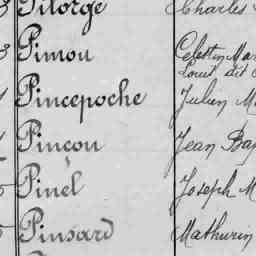 Pilorge Charles
Pimou Célestin Mar
Louis dit
Pincepoche Julien M
Pinçon Jean Bap
Pinel Joseph M
Pinsard Mathurin